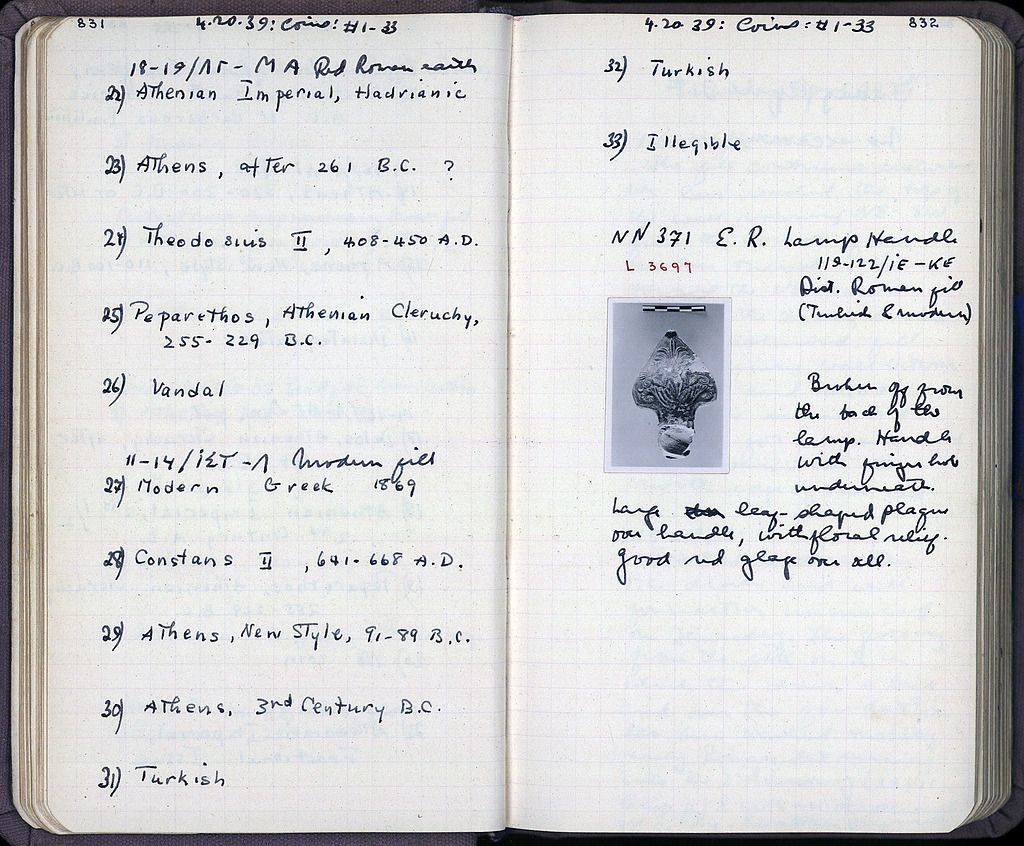 831
4.20.39: Coins: #1-33
18-19/ΛΓ - M A Red Roman earth
22) Athenian Imperial, Hadrianic
23) Athens, after 261 B.C. ?
24) Theodosius II, 408-450 A.D.
25) Peparethos, Athenian Cleruchy,
255-229 B.C.
26) Vandal
11-14/ Modern fill
27) Modern Greek 1869
28) Constans II, 641-668 A.D.
29) Athens, New Style, 91-89 B.C.
30) Athens, 3rd Century B.C.
31) Turkish
4.20.39: Coins: #1-33
832
32) Turkish
33) Illegible
NN 371 E.R. Lamp Handle
L 3697
119-122/ΙΕ-ΚΕ
Dist. Roman fill
(Turkish & modern)
Broken off from
the back of the
lamp. Handle
with finger hole
underneath.
Large leaf-shaped plaque
over handle, with floral relief.
Good red glaze over all.